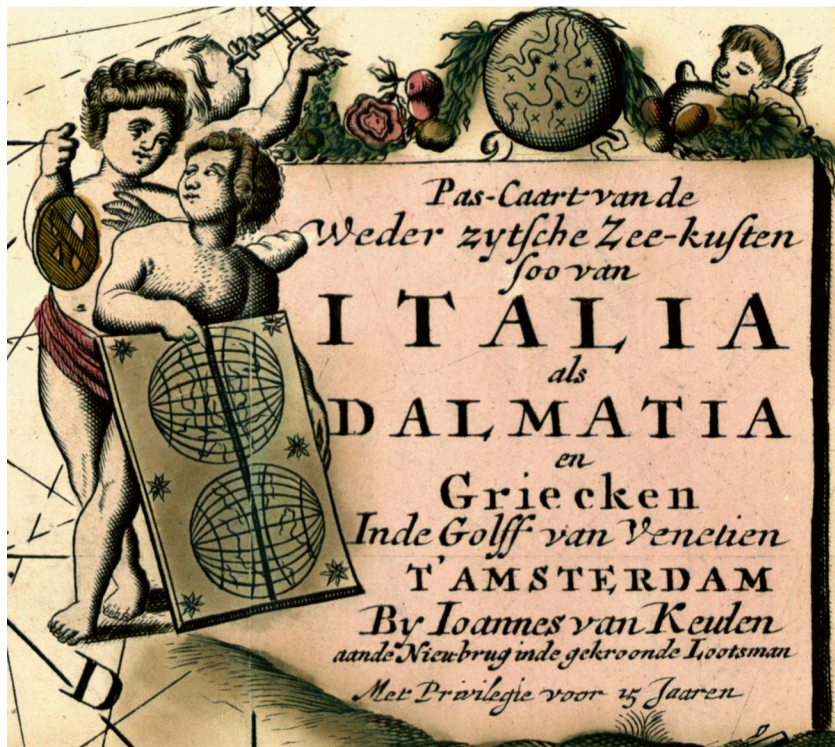 Pas-Caart van de
Weder zytsche Zee-kusten
soo van
ITALIA
als
DALMATIA
en
Griecken
Inde Golff van Venetien
T'AMSTERDAM
By Ioannes van Keulen
aande Nieubrug inde gekroonde Lootsman
Met Privilegie voor 15 Jaaren
D